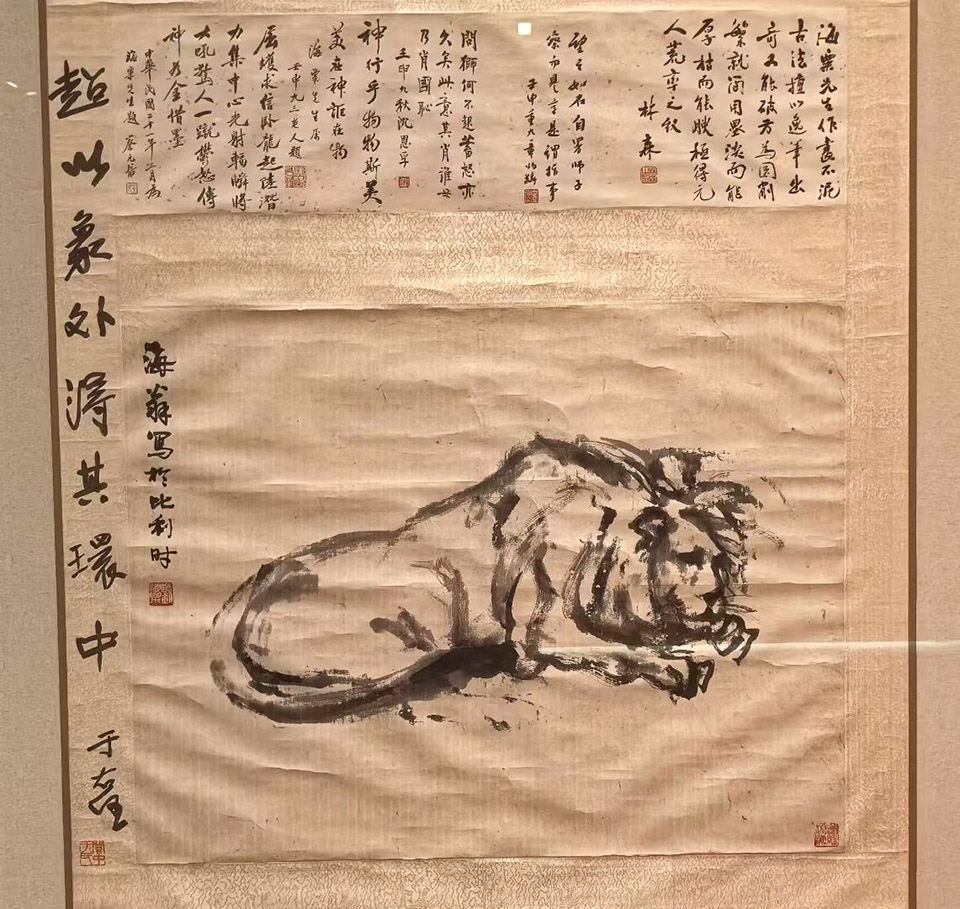 海粟先生作畫不泥
古法擅以逸筆出
奇又能破方為圓削
繁就簡用墨淡而能
厚枯而能腴極得元
人荒率之致
林森
望之如石自男師子
察而見意是謂指事
壬申重九章炳麟
問獅何不起蓄怒亦
久矣此意其肖誰毋
乃肖國恥
壬申九秋沈恩孚
神行乎物物斯美
美在神詎在物
海粟先生属
壬申九三老人題
屈蠖求信卧龍起陸潛
力集中心光射輻瞬將
大吼驚人一蹴鬱怒傳
神金惜墨
中華民國二十一年二月為
海粟先生題 蔡元培
超以象外得其環中
于右任
海翁写於比利时